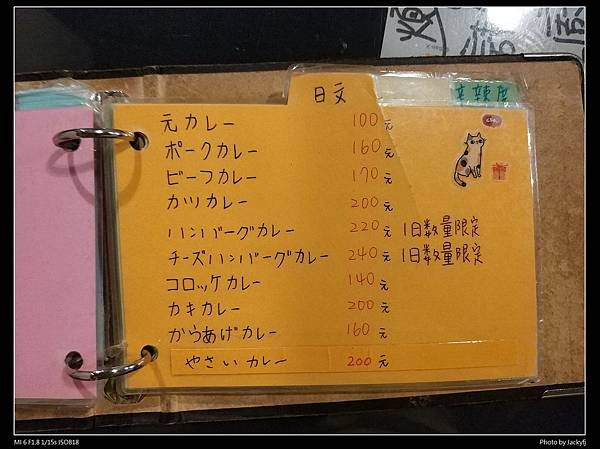 日文
辛辣度
元カレー 100元
ポークカレー 160元
ビーフカレー 170元
カツカレー 200元
ハンバーグカレー 220元 1日数量限定
チーズハンバーグカレー 240元 1日数量限定
コロッケカレー 140元
カキカレー 200元
からあげカレー 160元
やさいカレー 200元
MI 6 F1.8 1/15s ISO818
Photo by Jackyfj